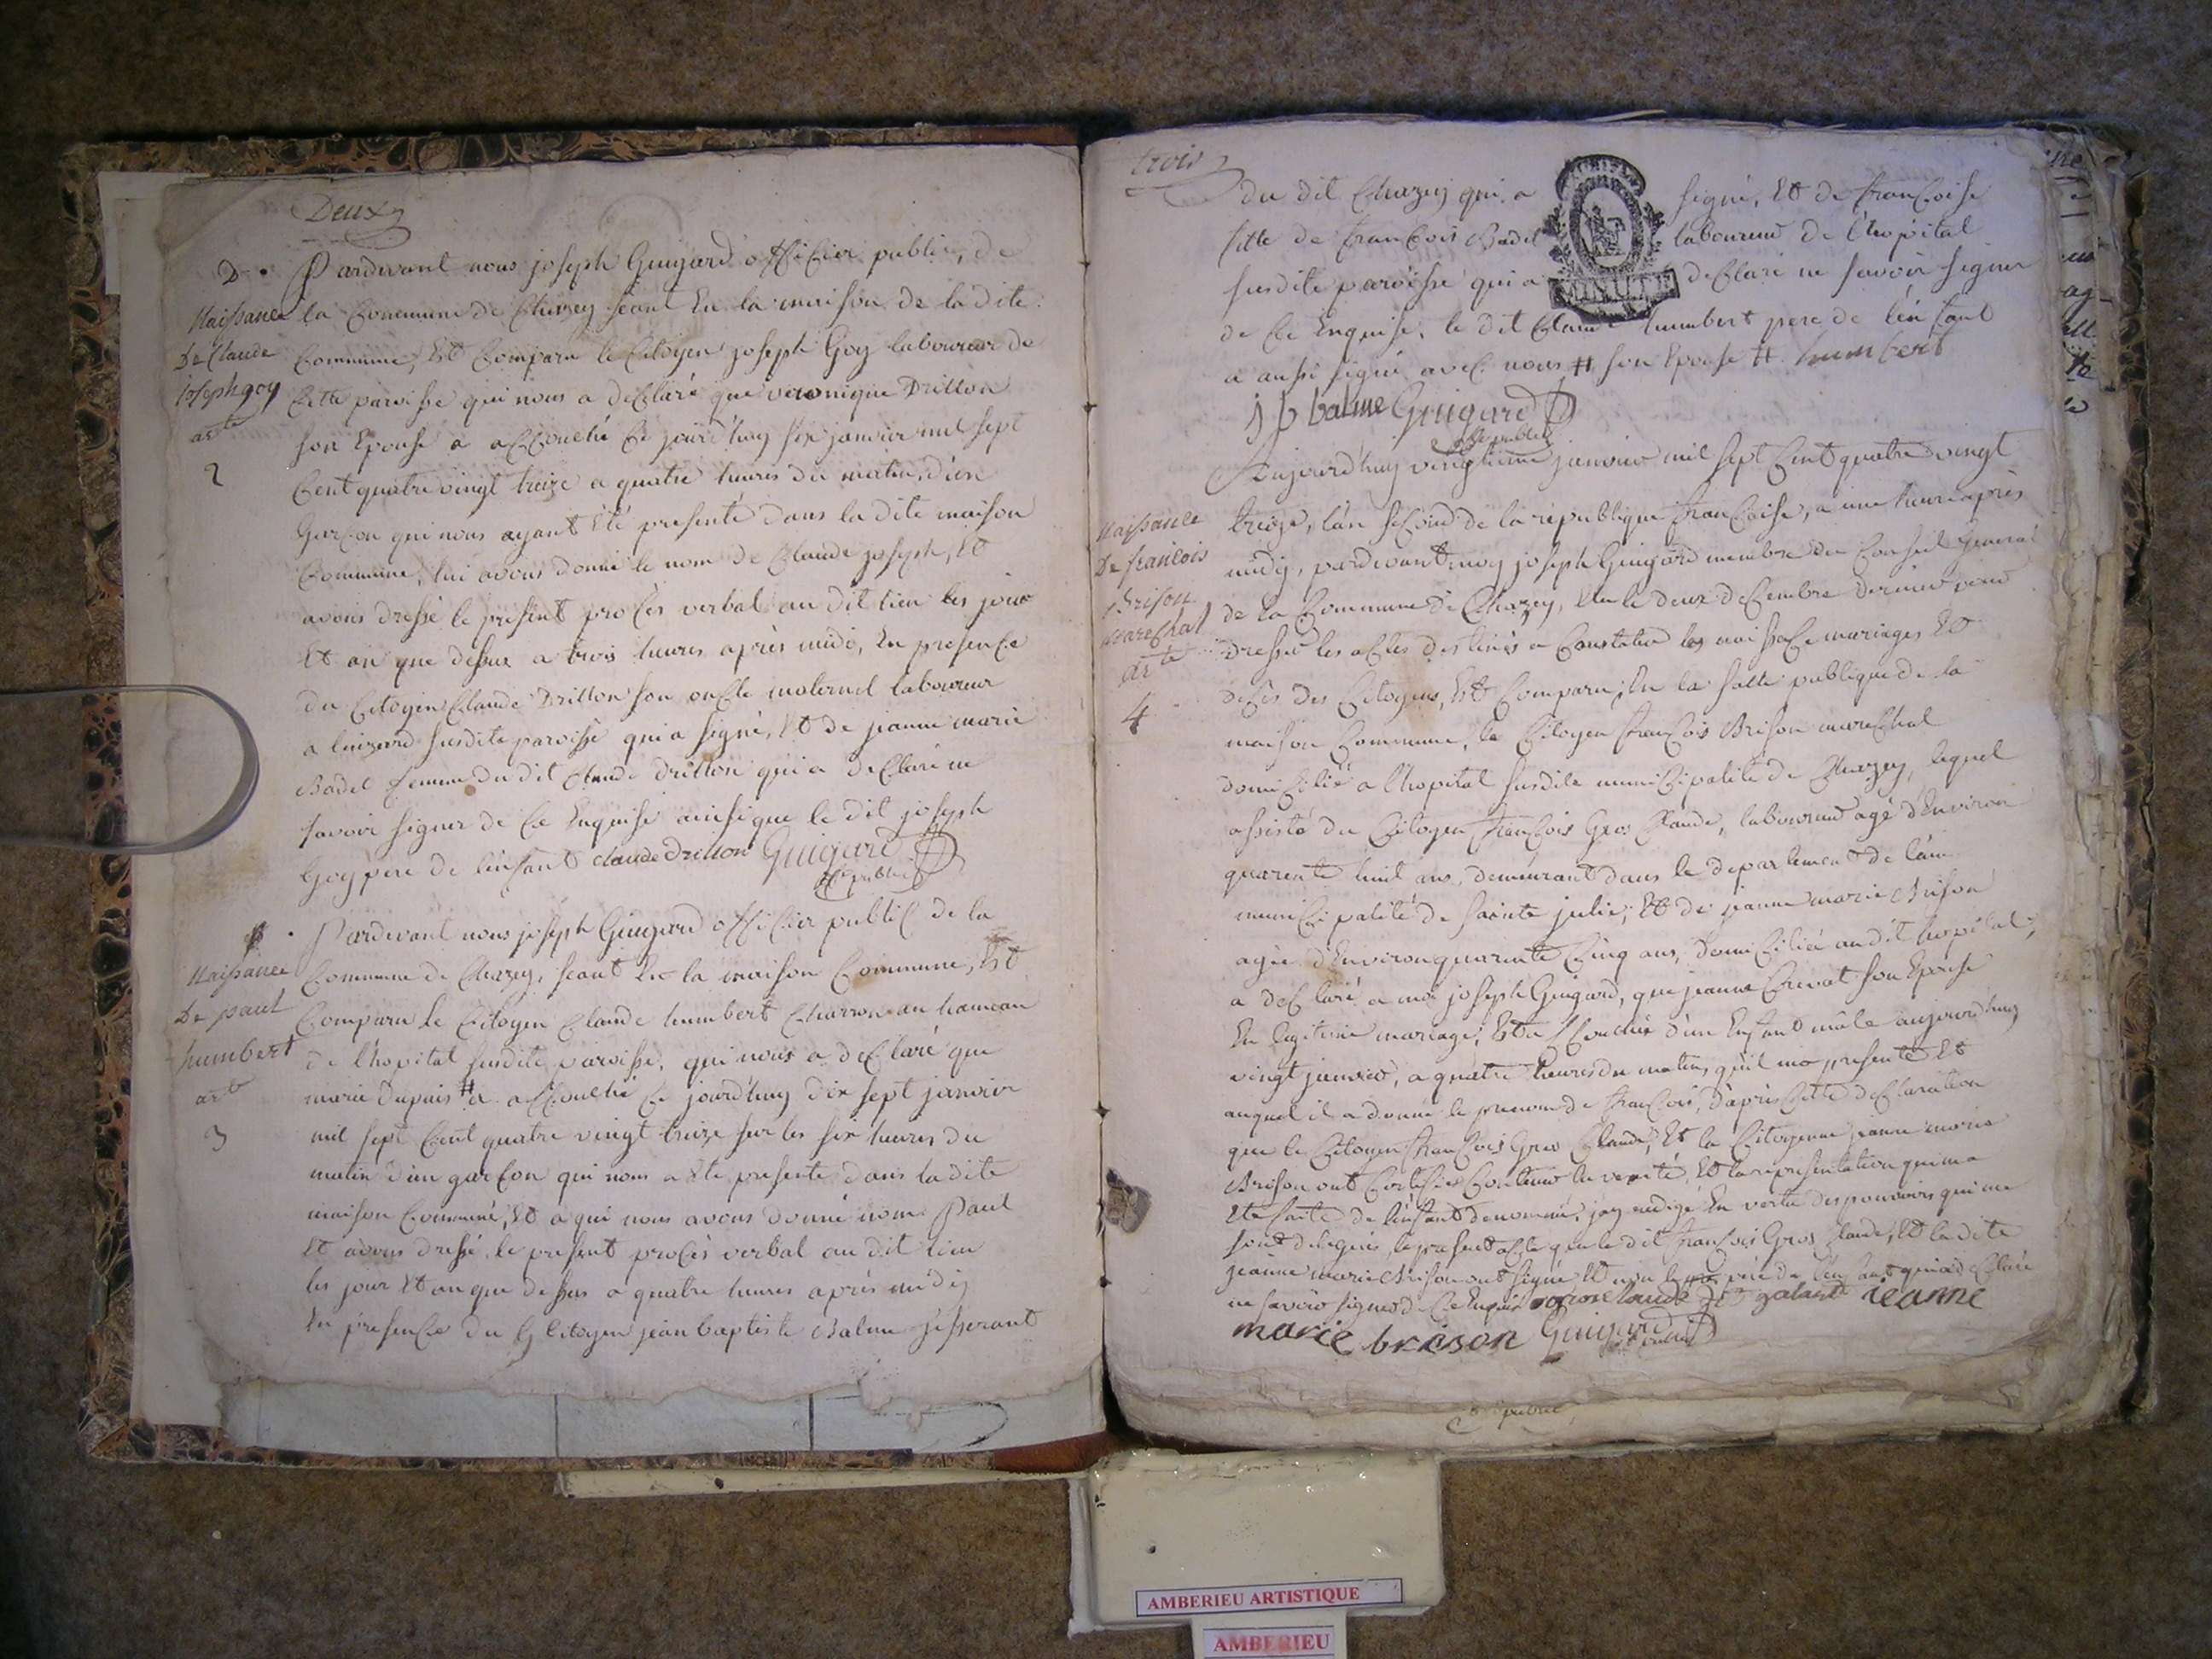 Deux
D. Pardevant nous joseph Guigard officier public, de
Naissance
De Claude
joseph goy
arte
2
la Commune de Chazey seant En la maison de la dite
Commune, Est Comparu le Citoyen joseph Goy laboureur de
Cette paroisse qui nous a déClaré que veronique Drillon
son Epouse a aCCouché Ce jourd'huy six janvier mil sept
Cent quatre vingt treize a quatre heures du matin, d'un
GarCon qui nous ayant Eté presenté dans la dite maison
Commune, lui avons donné le nom de Claude joseph, Et
avons dressé le present proCès verbal au dit lieu les jour
Et an que dessus a trois heures après midi, En presenCe
du Citoyen Claude Drillon son onCle maternel laboureur
a luizard susdite paroisse qui a signé, Et de jeanne marie
Badel femme du dit Claude drillon qui a deClaré ne
savoir signer de Ce Enquise ainsi que le dit joseph
Goy pere de l'enfant claude drillon Guigard
off. public
Pardevant nous joseph Guigard offiCier publiC de la
Naissance
De paul
humbert
arte
3
Commune de Chazey, seant En la maison Commune, Est
Comparu le Citoyen Claude humbert Charron au hameau
de l'hopital susdite paroisse, qui nous a deClaré que
marie dupuis # a aCCouché Ce jourd'huy dix sept janvier
mil sept Cent quatre vingt treize sur les six heures du
matin d'un garCon qui nous a Eté presenté dans la dite
maison Commune, Et a qui nous avons donné nom Paul
Et avons dressé le present proCès verbal au dit lieu
les jour Et an que dessus a quatre heures après midi
En presenCe du Citoyen jean baptiste Balme
trois
du dit Chazey qui a signé, Et de franCoise
fille de franCois Badel laboureur de l'hopital
susdite paroisse qui a deClaré ne savoir signer
MINUTE
de Ce Enquise, le dit Claude humbert pere de l'enfant
a aussi signé avec nous # son Epouse # humbert
j b balme Guigard
off. public
Aujourd'huy vingtieme janvier mil sept Cent quatre vingt
Naissance
De francois
Brison
mareChal
arte
4
treize, l'an seCond de la republique franCoise, a une heure après
midy, pardevant moy joseph Guigard membre du Conseil General
de la Commune de Chazey, Elu le deux deCembre dernier pour
dresser les aCtes destinés a Constater les naissanCe mariages Et
déCès des Citoyens, Est Comparu, En la salle publique de la
maison Commune, le Citoyen franCois Brison mareChal
domiCilié a l'hopital susdite muniCipalité de Chazey, lequel
assisté du Citoyen franCois Gros Claude, laboureur agé d'Environ
quarente huit ans, demeurant dans le departement de l'ain
muniCipalité de sainte julie, Et de jeanne marie Brison
agée d'Environ quarente Cinq ans, domiCiliée au dit hopital,
a déClaré a moi joseph Guigard, que jeanne son Epouse
En legitime mariage, Est aCCouchée d'un Enfant mâle aujourd'huy
vingt janvier, a quatre heures du matin, qu'il m'a presenté Et
auquel il a donné le prenom de franCois, d'après Cette deClaration
que le Citoyen franCois Gros Claude, Et la Citoyenne jeanne marie
Brison ont Certifiés Contenir la verité, Et la representation qui m'a
Eté faite de l'enfant denommé, j'ay redigé En vertu des pouvoirs qui me
sont delegués, le present aCte que le dit franCois Gros Claude, Et la dite
jeanne marie Brison ont signé Et non le pere de l'enfant qui a deClaré
ne savoir signer de Ce Enquis groscelaude jeanne
marie brison Guigard
off. public
public
AMBERIEU ARTISTIQUE
AMBERIEU